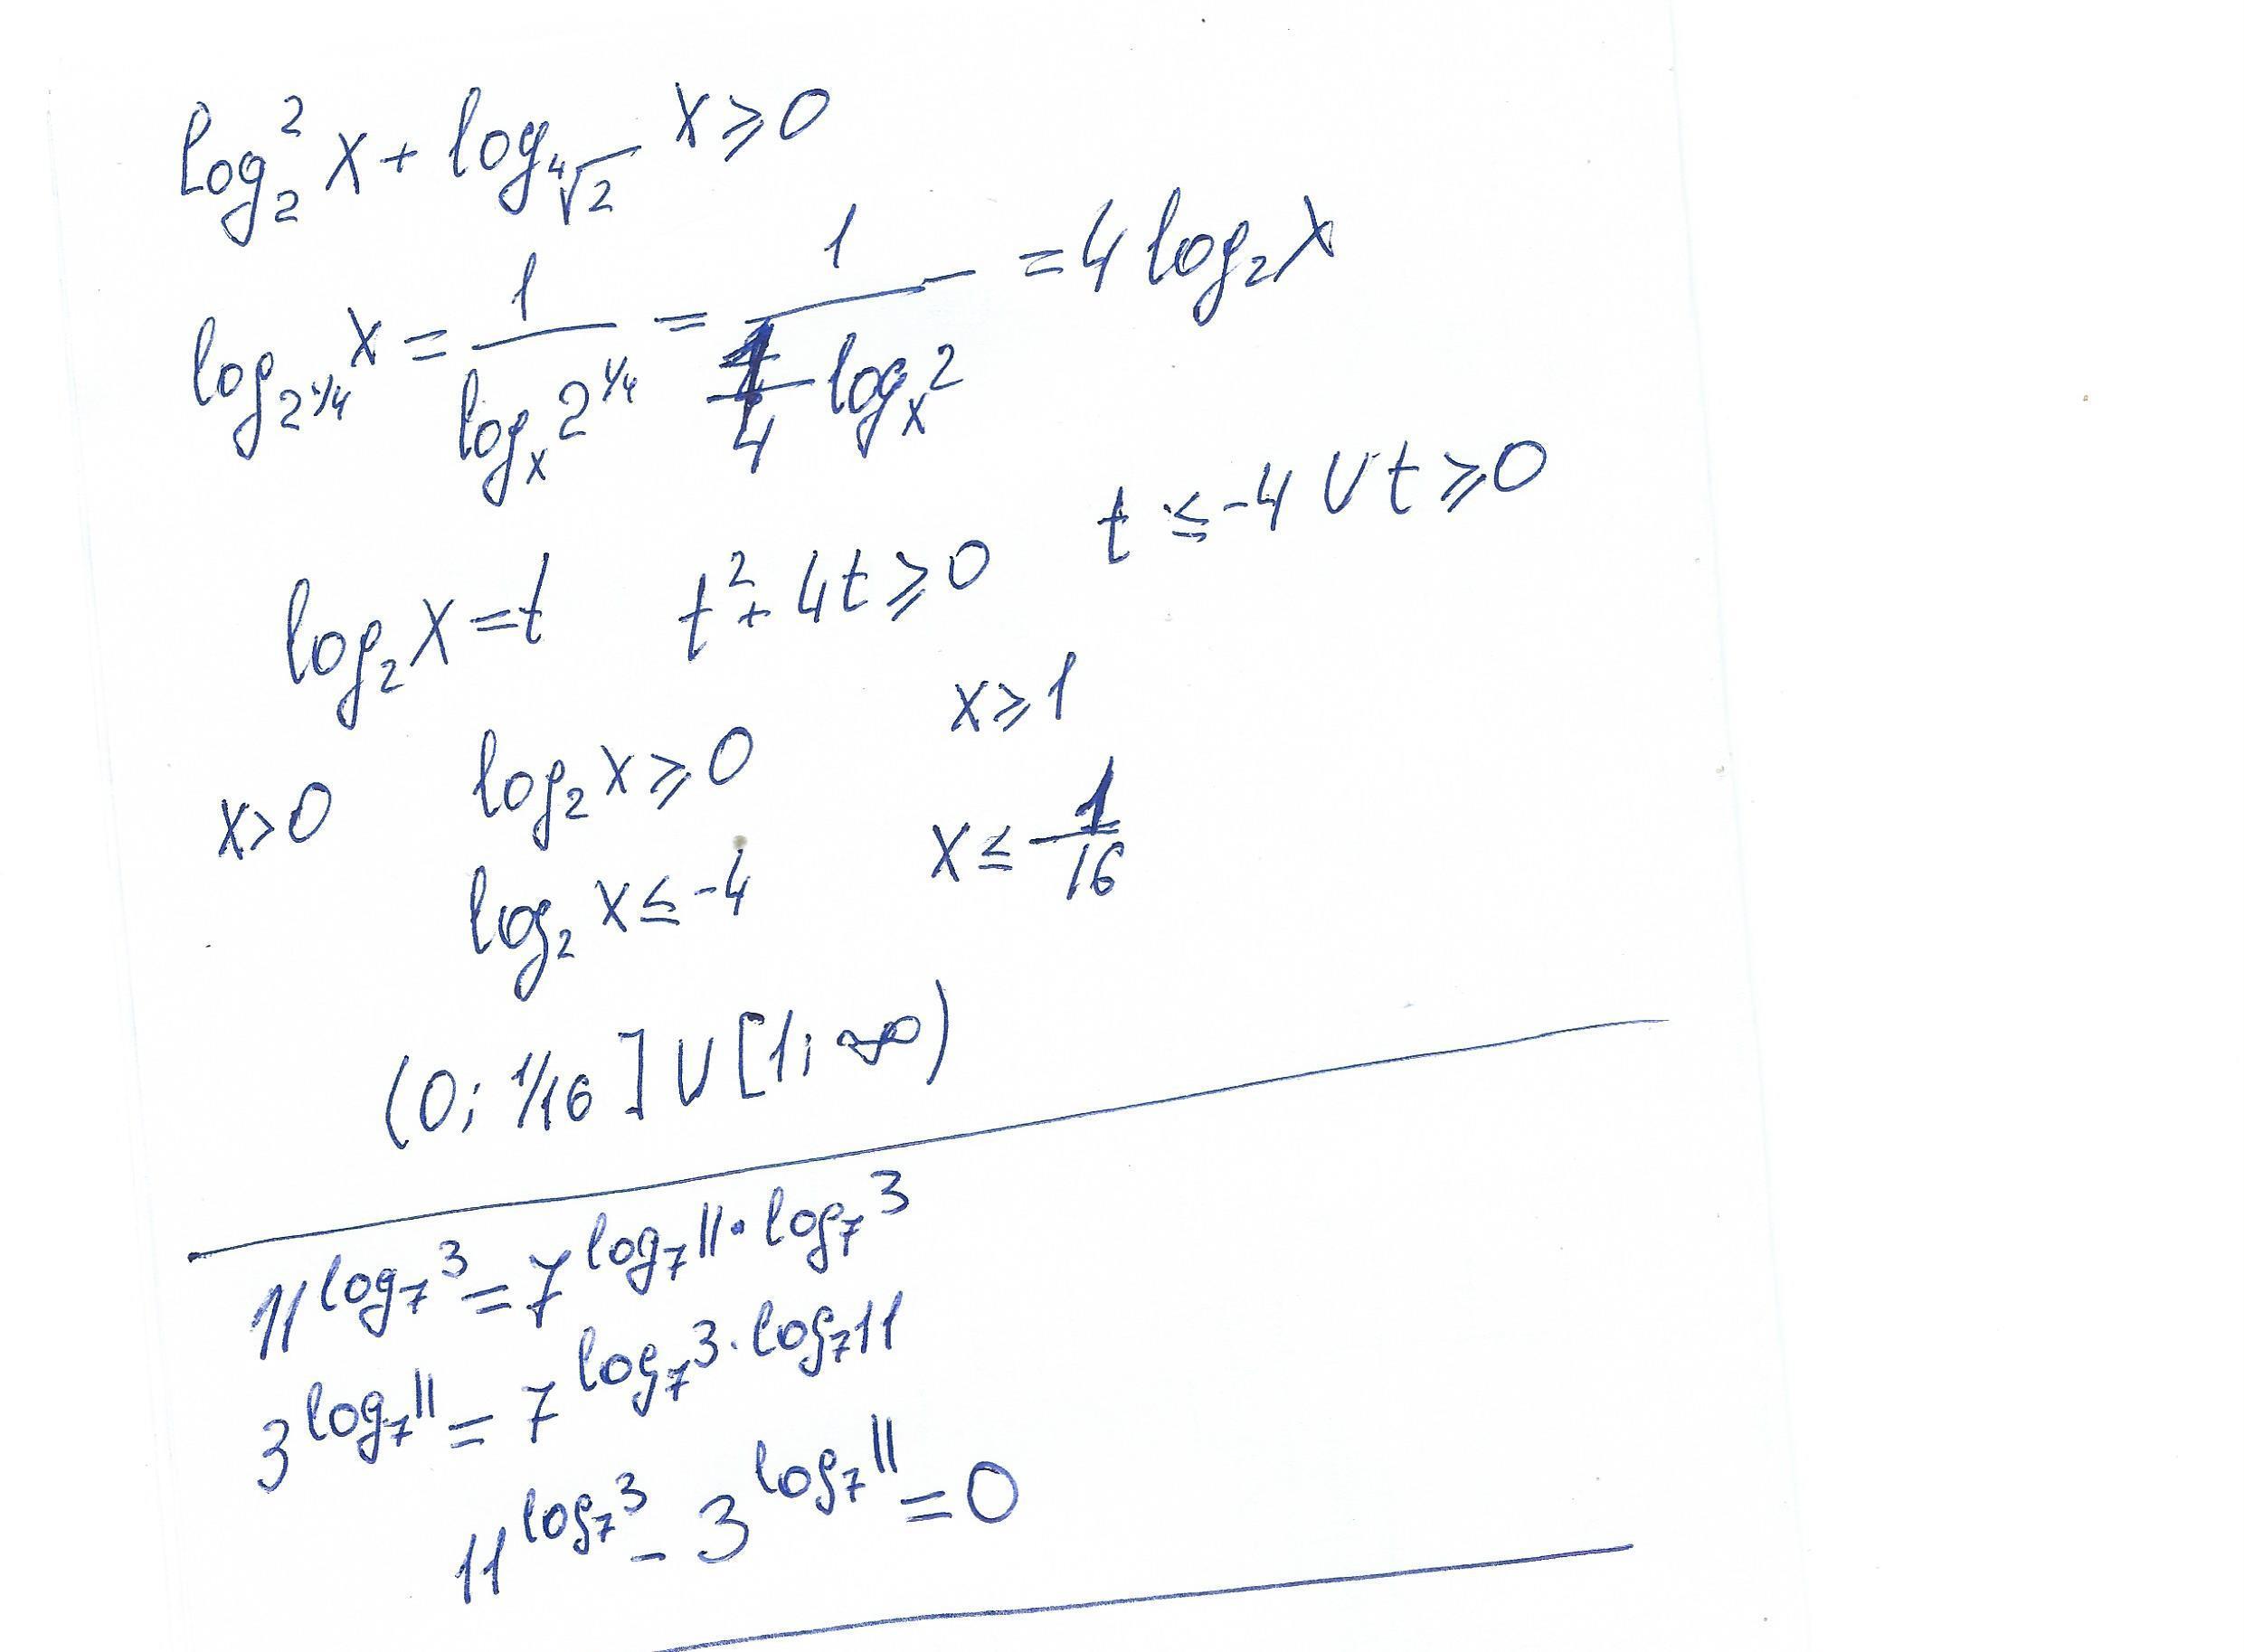 log₂² x + log_{⁴√2} x ⩾ 0
log_{2^{1/4}} x = 1/(log_x 2^{1/4}) = 1/((1/4) log_x 2) = 4 log₂ x
log₂ x = t   t² + 4t ⩾ 0   t ≤ -4 ∪ t ⩾ 0
x > 0   log₂ x ⩾ 0   x ⩾ 1
log₂ x ≤ -4   x ≤ 1/16
(0; 1/16] ∪ [1; ∞)
11^{log₇ 3} = 7^{log₇ 11 · log₇ 3}
3^{log₇ 11} = 7^{log₇ 3 · log₇ 11}
11^{log₇ 3} - 3^{log₇ 11} = 0